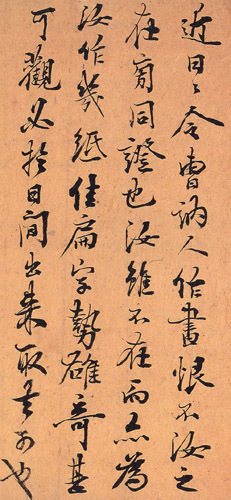 近日々令曹訥人作書恨不汝之
在同證也汝雖不在而亦為
汝作幾紙佳扁字勢雄奇甚
可觀必於日間出來取去可也